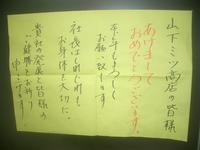 山下ミツ商店の皆様
あけまして
おめでとうございます。
本年もよろしく
お願い致します
社長はじめ
お身体を大切に。
貴社の発展と皆様の
ご健勝をお祈り
申し上げます